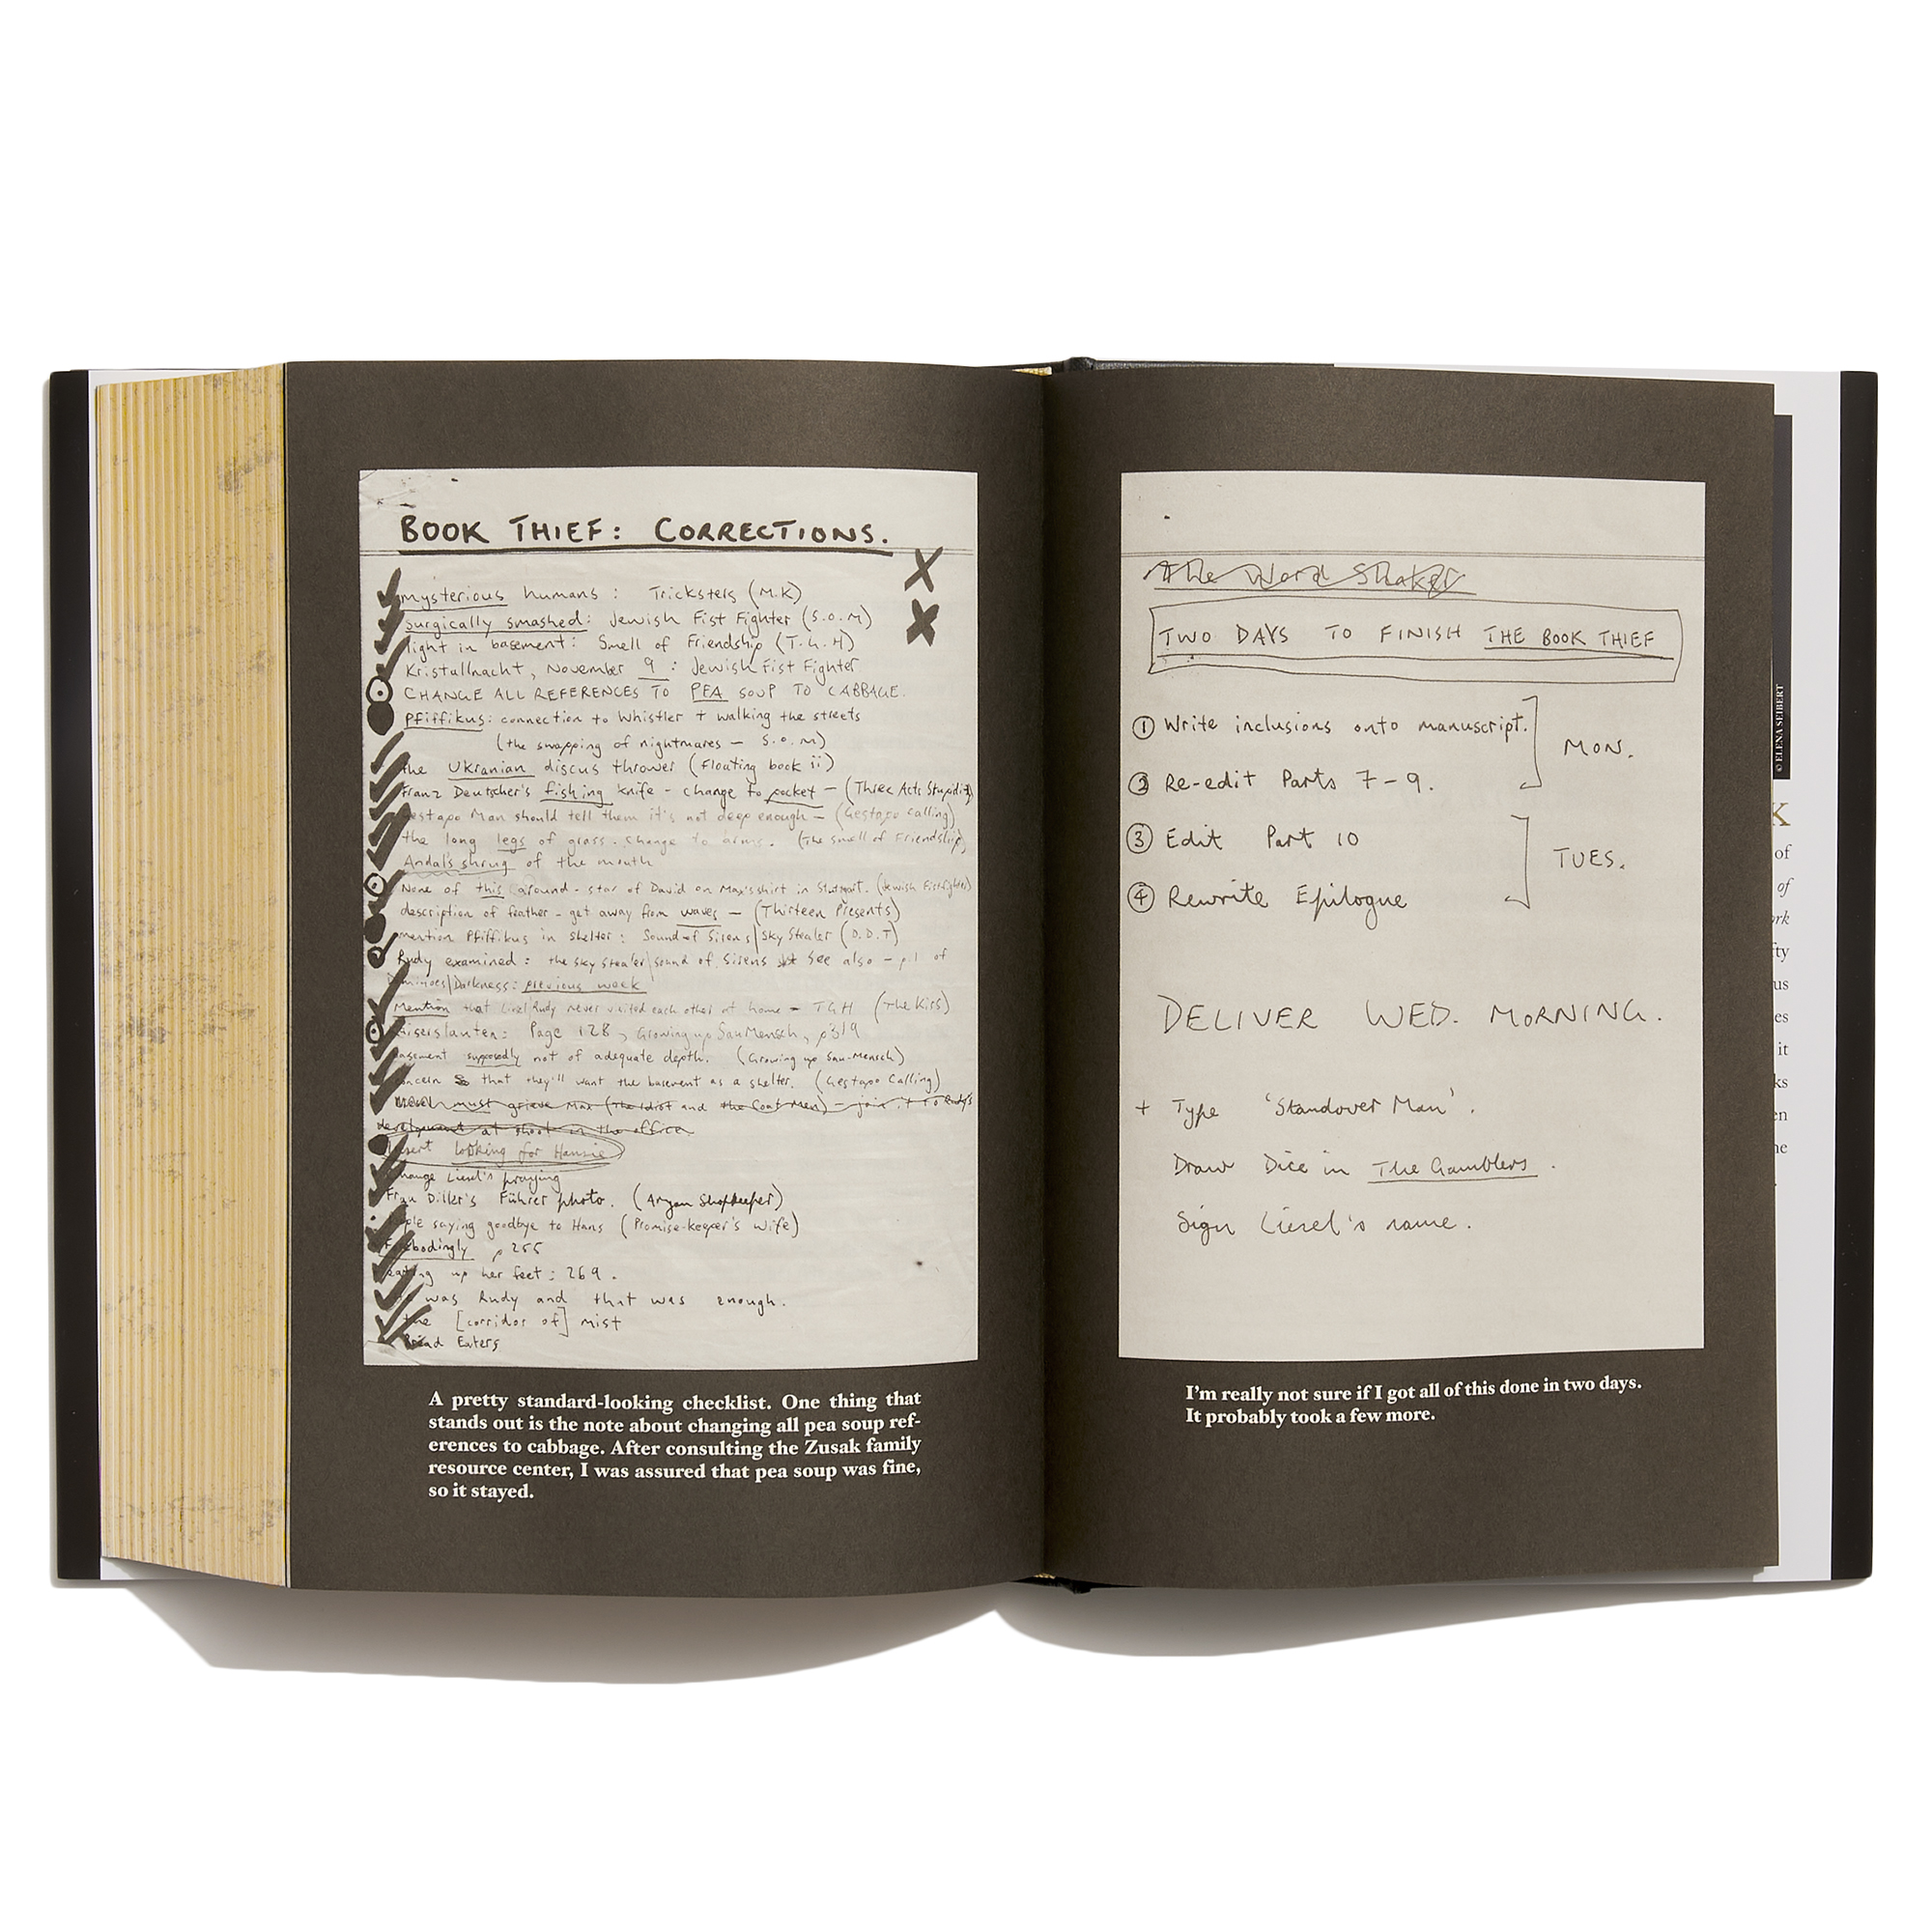 BOOK THIEF: CORRECTIONS.
mysterious humans: Tricksters (M.K)
surgically smashed: Jewish Fist Fighter (S.O.M)
light in basement: Smell of Friendship (T.G.H)
Kristallnacht, November 9: Jewish Fist Fighter
CHANGE ALL REFERENCES TO PEA SOUP TO CABBAGE.
Pfiffikus: connection to Whistler + walking the streets
(the swapping of nightmares - S.O.M)
the Ukranian discus thrower (floating book ii)
Franz Deutscher's fishing knife - change to pocket - (Three Acts Stupidity)
Gestapo Man should tell them it's not deep enough - (Gestapo Calling)
the long legs of grass. change to arms. (The smell of Friendship)
shrug of the mouth
None of this around - star of David on Max's shirt in Stuttgart. (Jewish Fistfighter)
description of feather - get away from waves - (Thirteen Presents)
mention Pfiffikus in shelter: Sound of Sirens/Sky Stealer (D.D.T)
Rudy examined: the sky stealer/sound of sirens See also - p.1 of
Dominoes/Darkness: previous week
Mention that Liesel/Rudy never visited each other at home - TGH (The Kiss)
Page 128, Growing up SauMensch, p319
basement supposedly not of adequate depth. (Growing up Sau-Mensch)
concern that they'll want the basement as a shelter. (Gestapo Calling)
must grieve Max (The Idiot and the Coat Men) - join it to Rudy's
development at shoot in the office.
Insert looking for Hansie
change Liesel's praying
Frau Diller's Führer photo. (Aryan Shopkeeper)
people saying goodbye to Hans (Promise-keeper's Wife)
Forebodingly p255
eating up her feet: 269.
was Rudy and that was enough.
the [corridor of] mist
Bread Eaters
A pretty standard-looking checklist. One thing that
stands out is the note about changing all pea soup ref-
erences to cabbage. After consulting the Zusak family
resource center, I was assured that pea soup was fine,
so it stayed.
The Word Shaker
TWO DAYS TO FINISH THE BOOK THIEF
① Write inclusions onto manuscript.
② Re-edit Parts 7-9.
MON.
③ Edit Part 10
④ Rewrite Epilogue
TUES.
DELIVER WED. MORNING.
+ Type 'Standover Man'.
Draw Dice in The Gamblers.
Sign Liesel's name.
I'm really not sure if I got all of this done in two days.
It probably took a few more.
© ELENA SEIBERT
K
of
of
ork
fty
us
es
it
ks
en
he